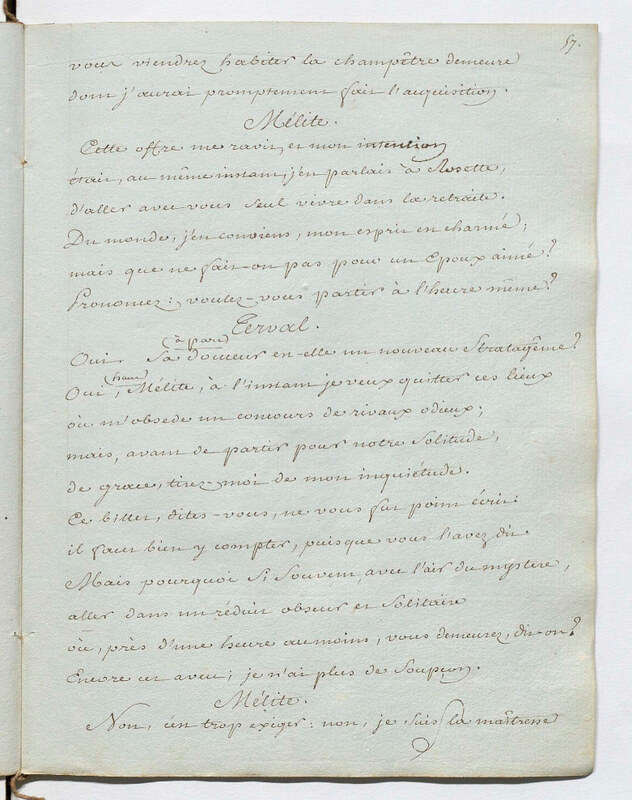 57.
vous viendrez habiter la champêtre demeure
dont j'aurai promptement fait l'acquisition.
Mélite.
Cette offre me ravit, et mon intention
était, au même instant, j'en parlais à Rosette,
d'aller avec vous seul vivre dans la retraite.
Du monde, j'en conviens, mon esprit est charmé;
mais que ne fait-on pas pour un Epoux aimé?
Prononcez: voulez-vous partir à l'heure même?
Terval.
(à part)
Oui. Sa douceur est-elle un nouveau Stratagême?
(haut)
Oui, Mélite, à l'instant je veux quitter ces lieux
où m'obsede un concours de rivaux odieux;
mais, avant de partir pour notre Solitude,
de grace, tirez-moi de mon inquiétude.
Ce billet, dites-vous, ne vous fut point écrit:
il faut bien y compter, puisque vous l'avez dit.
Mais pourquoi Si Souvent, avec l'air du mystère,
aller dans un réduit obscur et Solitaire
où, près d'une heure au moins, vous demeurez, dit-on?
Encore cet aveu; je n'ai plus de Soupçon.
Mélite.
Non, c'est trop exiger: non, je suis la maîtresse